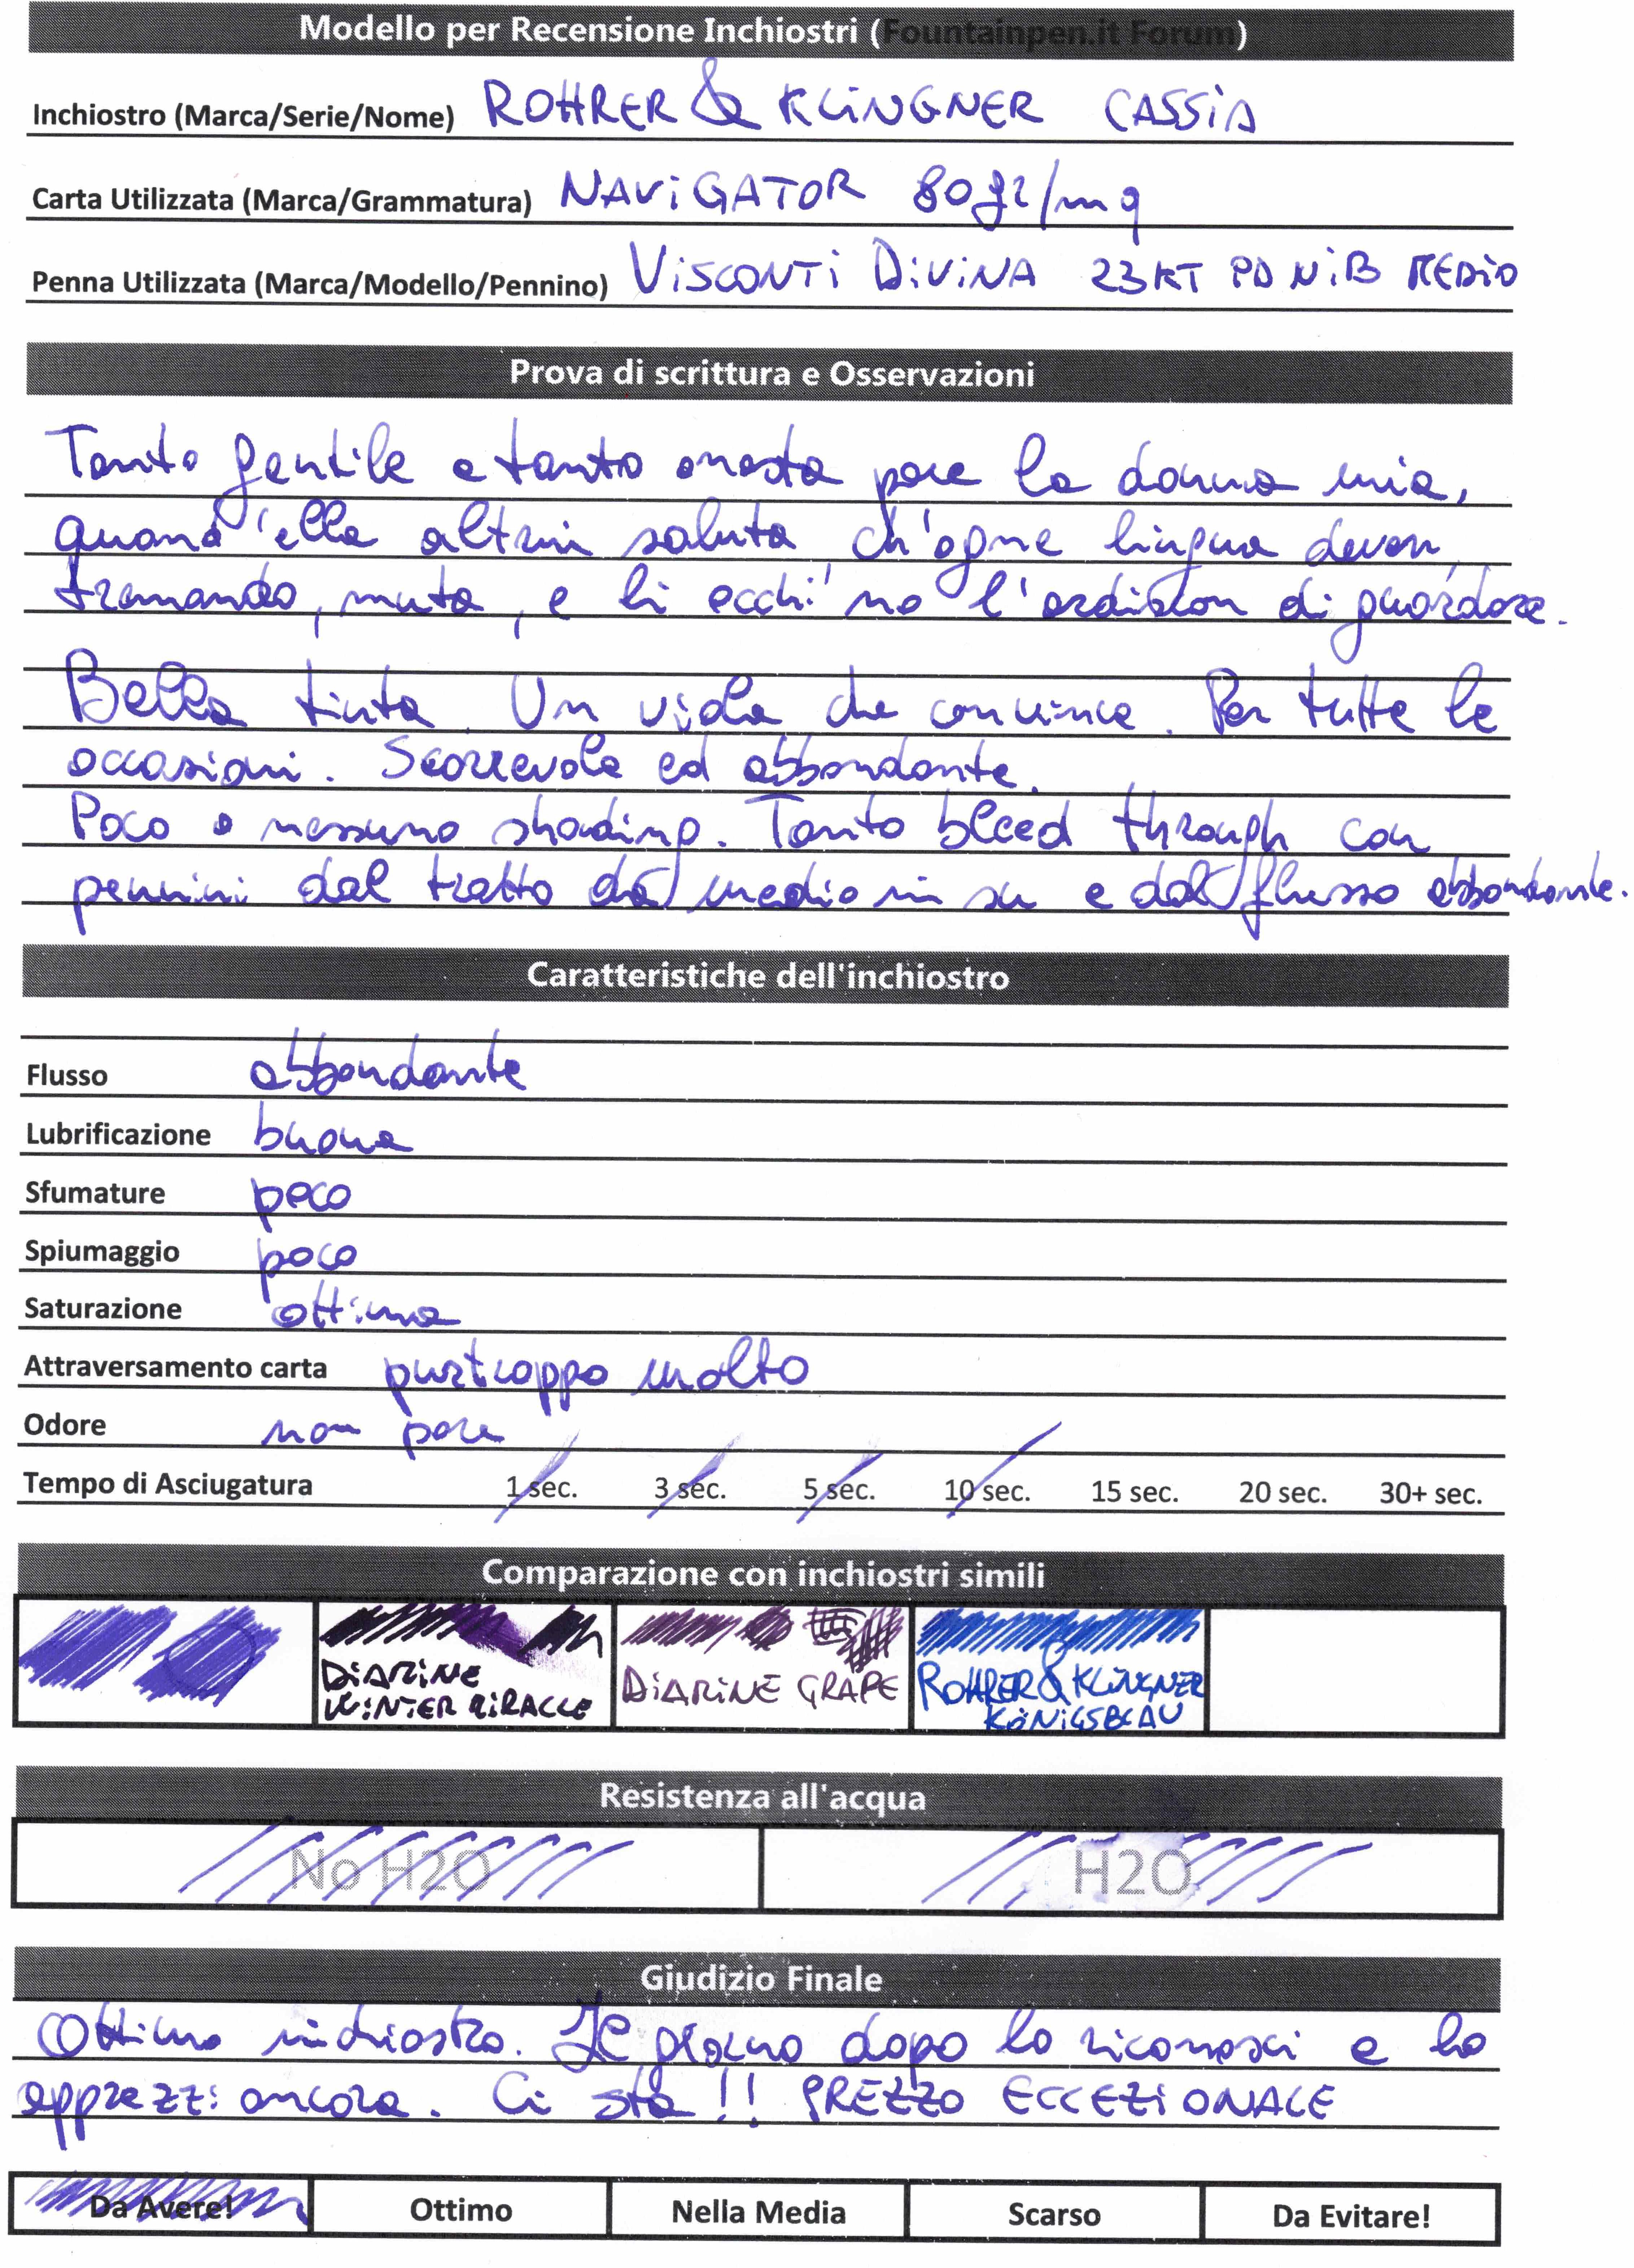 Modello per Recensione Inchiostri (Fountainpen.it Forum)
Inchiostro (Marca/Serie/Nome) ROHRER & KLiNGNER CASSiA
Carta Utilizzata (Marca/Grammatura) NAViGATOR 80gr/mq
Penna Utilizzata (Marca/Modello/Pennino) ViSCONTi DiViNA 23KT PD NiB MEDiO
Prova di scrittura e Osservazioni
Tanto gentile e tanto onesta pare la donna mia,
quand'ella altrui saluta ch'ogne lingua deven,
tremando, muta, e li occhi no l'ardiscon di guardare.
Bella tinta. Un viola che convince. Per tutte le
occasioni. Scorrevole ed abbondante.
Poco o nessuno shading. Tanto bleed through con
pennini dal tratto dal medio in su e dal flusso abbondante.
Caratteristiche dell'inchiostro
Flusso abbondante
Lubrificazione buona
Sfumature poco
Spiumaggio poco
Saturazione ottima
Attraversamento carta purtroppo molto
Odore non pare
Tempo di Asciugatura 1 sec. 3 sec. 5 sec. 10 sec. 15 sec. 20 sec. 30+ sec.
Comparazione con inchiostri simili
DiAMiNE WiNTER MiRACLE
DiAMiNE GRAPE
ROHRER & KLiNGNER KÖNiGSBLAU
Resistenza all'acqua
No H2O H2O
Giudizio Finale
Ottimo inchiostro. Il giorno dopo lo riconosci e lo
apprezzi ancora. Ci sta!! PREZZO ECCEZiONALE
Da Avere! Ottimo Nella Media Scarso Da Evitare!